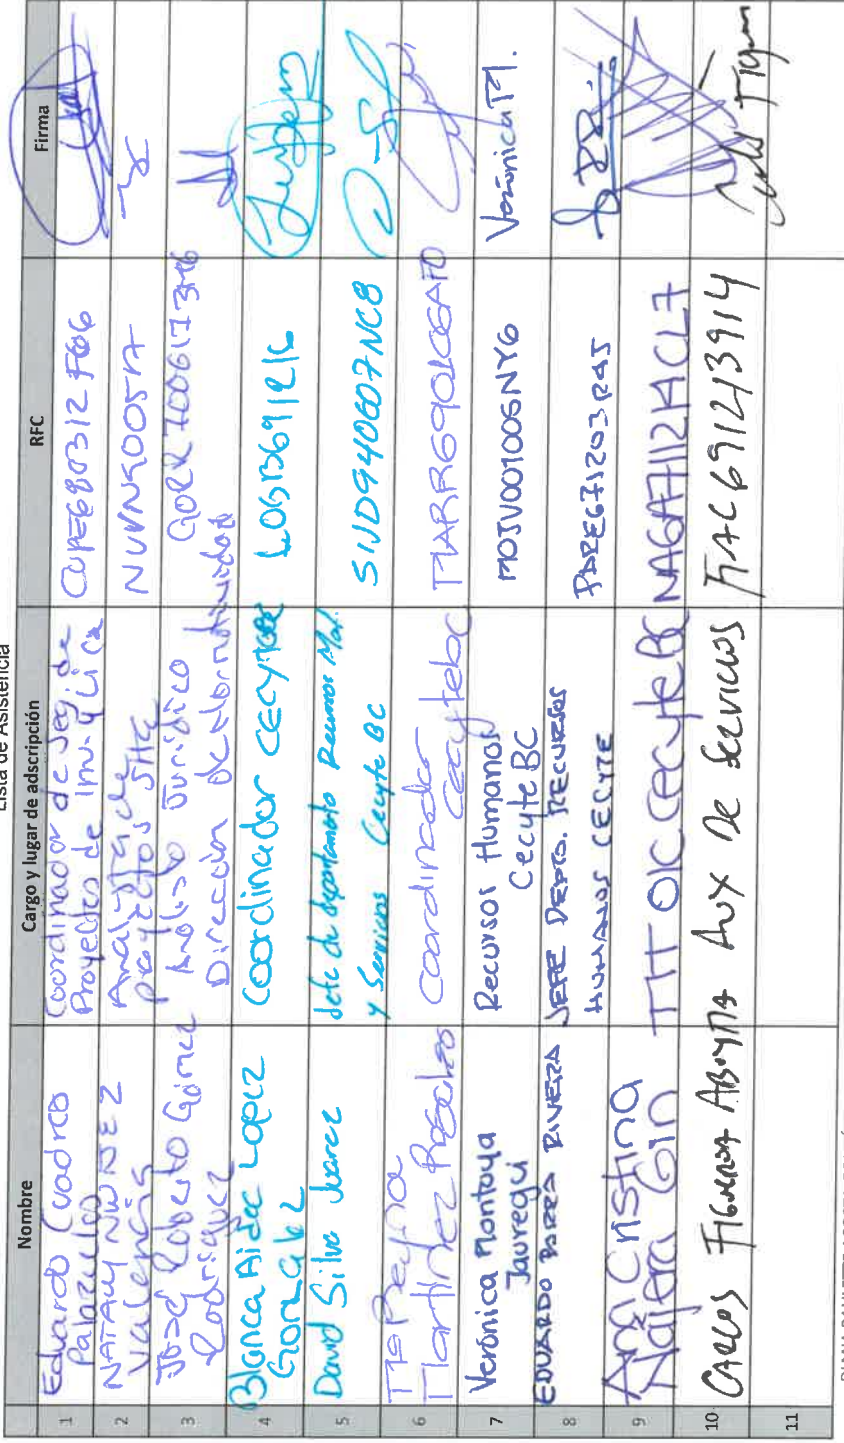 Lista de Asistencia
Nombre Cargo y lugar de adscripción RFC Firma
1 Eduardo Cuadros Palazuelos
Coordinador de Seg. de
Proyectos de Inv. y Lic
2 NATALY NUÑEZ
Valencia
Analista de
proyectos SHC
3 José Roberto Gómez
Rodriguez
Analista Juridico
Direccion de Normatividad
4 Blanca Aidee Lopez
Gonzalez
Coordinador CECYTEBC
5 David Silva Juarez
Jefe de departamento Recursos Mat.
y Servicios Cecyte BC
SIJD940607NC8
6 Ma Reyna
Martinez Rosales
Coordinador
Cecytebc
7 Verónica Montoya
Jauregui
Recursos Humanos
Cecyte BC
MOJV001006NY6
Verónica M.
8 EDUARDO PARRA RIVERA
JEFE DEPTO. RECURSOS
HUMANOS CECYTE
PARE671203R45
9 Ana Cristina
Najera Gin
TIT OIC CecyteBC
NAGA711214CL7
10 CARLOS FIGUEROA ABOYTIA
Aux De Servicios
FIAC691213914
11